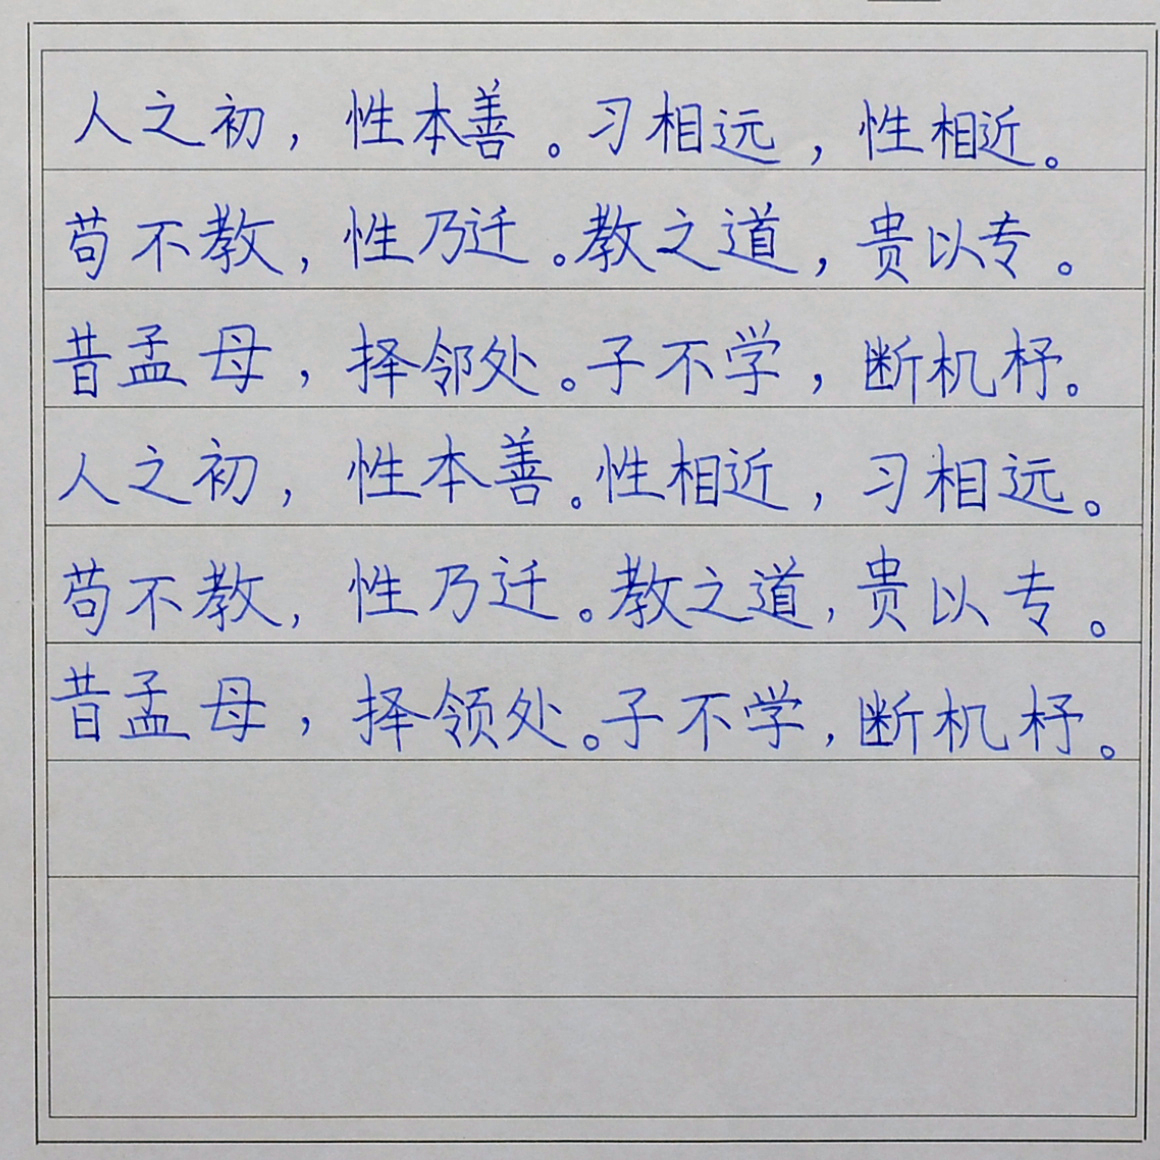 人之初，性本善。习相远，性相近。
苟不教，性乃迁。教之道，贵以专。
昔孟母，择邻处。子不学，断机杼。
人之初，性本善。性相近，习相远。
苟不教，性乃迁。教之道，贵以专。
昔孟母，择领处。子不学，断机杼。